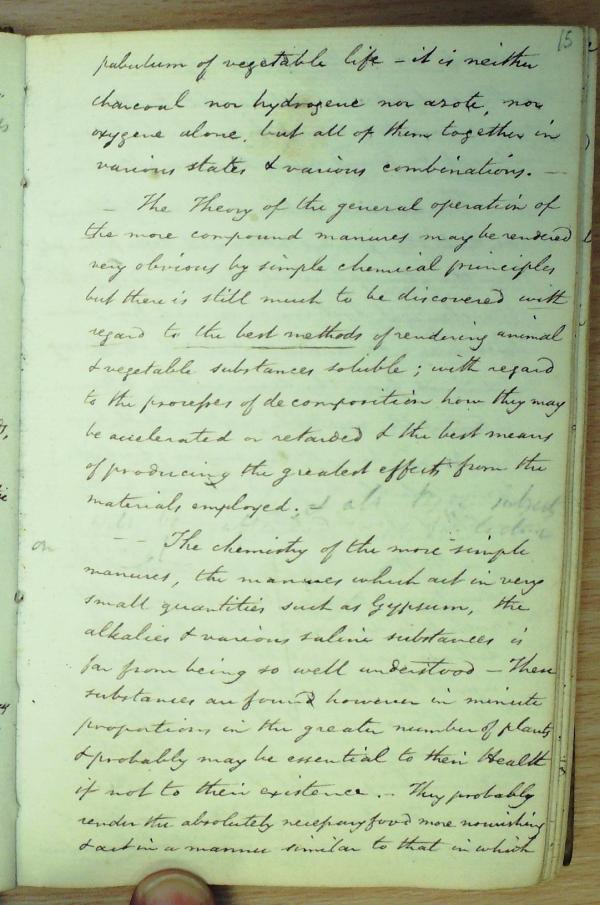 15
pabulum of vegetable life - it is neither
charcoal nor hydrogene nor azote, nor
oxygene alone, but all of them together in
various states & various combinations. —
— The Theory of the general operation of
the more compound manures may be rendered
very obvious by simple chemical principles
but there is still much to be discovered with
regard to the best methods of rendering animal
& vegetable substances soluble; with regard
to the processes of decomposition how they may
be accelerated or retarded & the best means
of producing the greatest effects from the
materials employed. &
on
— — The chemistry of the more simple
manures, the manures which act in very
small quantities such as Gypsum, the
alkalies & various saline substances is
far from being so well understood — These
substances are found however in minute
proportions in the greater number of plants
& probably may be essential to their Health
if not to their existence. - They probably
render the absolutely necessary food more nourishing
& act in a manner similar to that in which